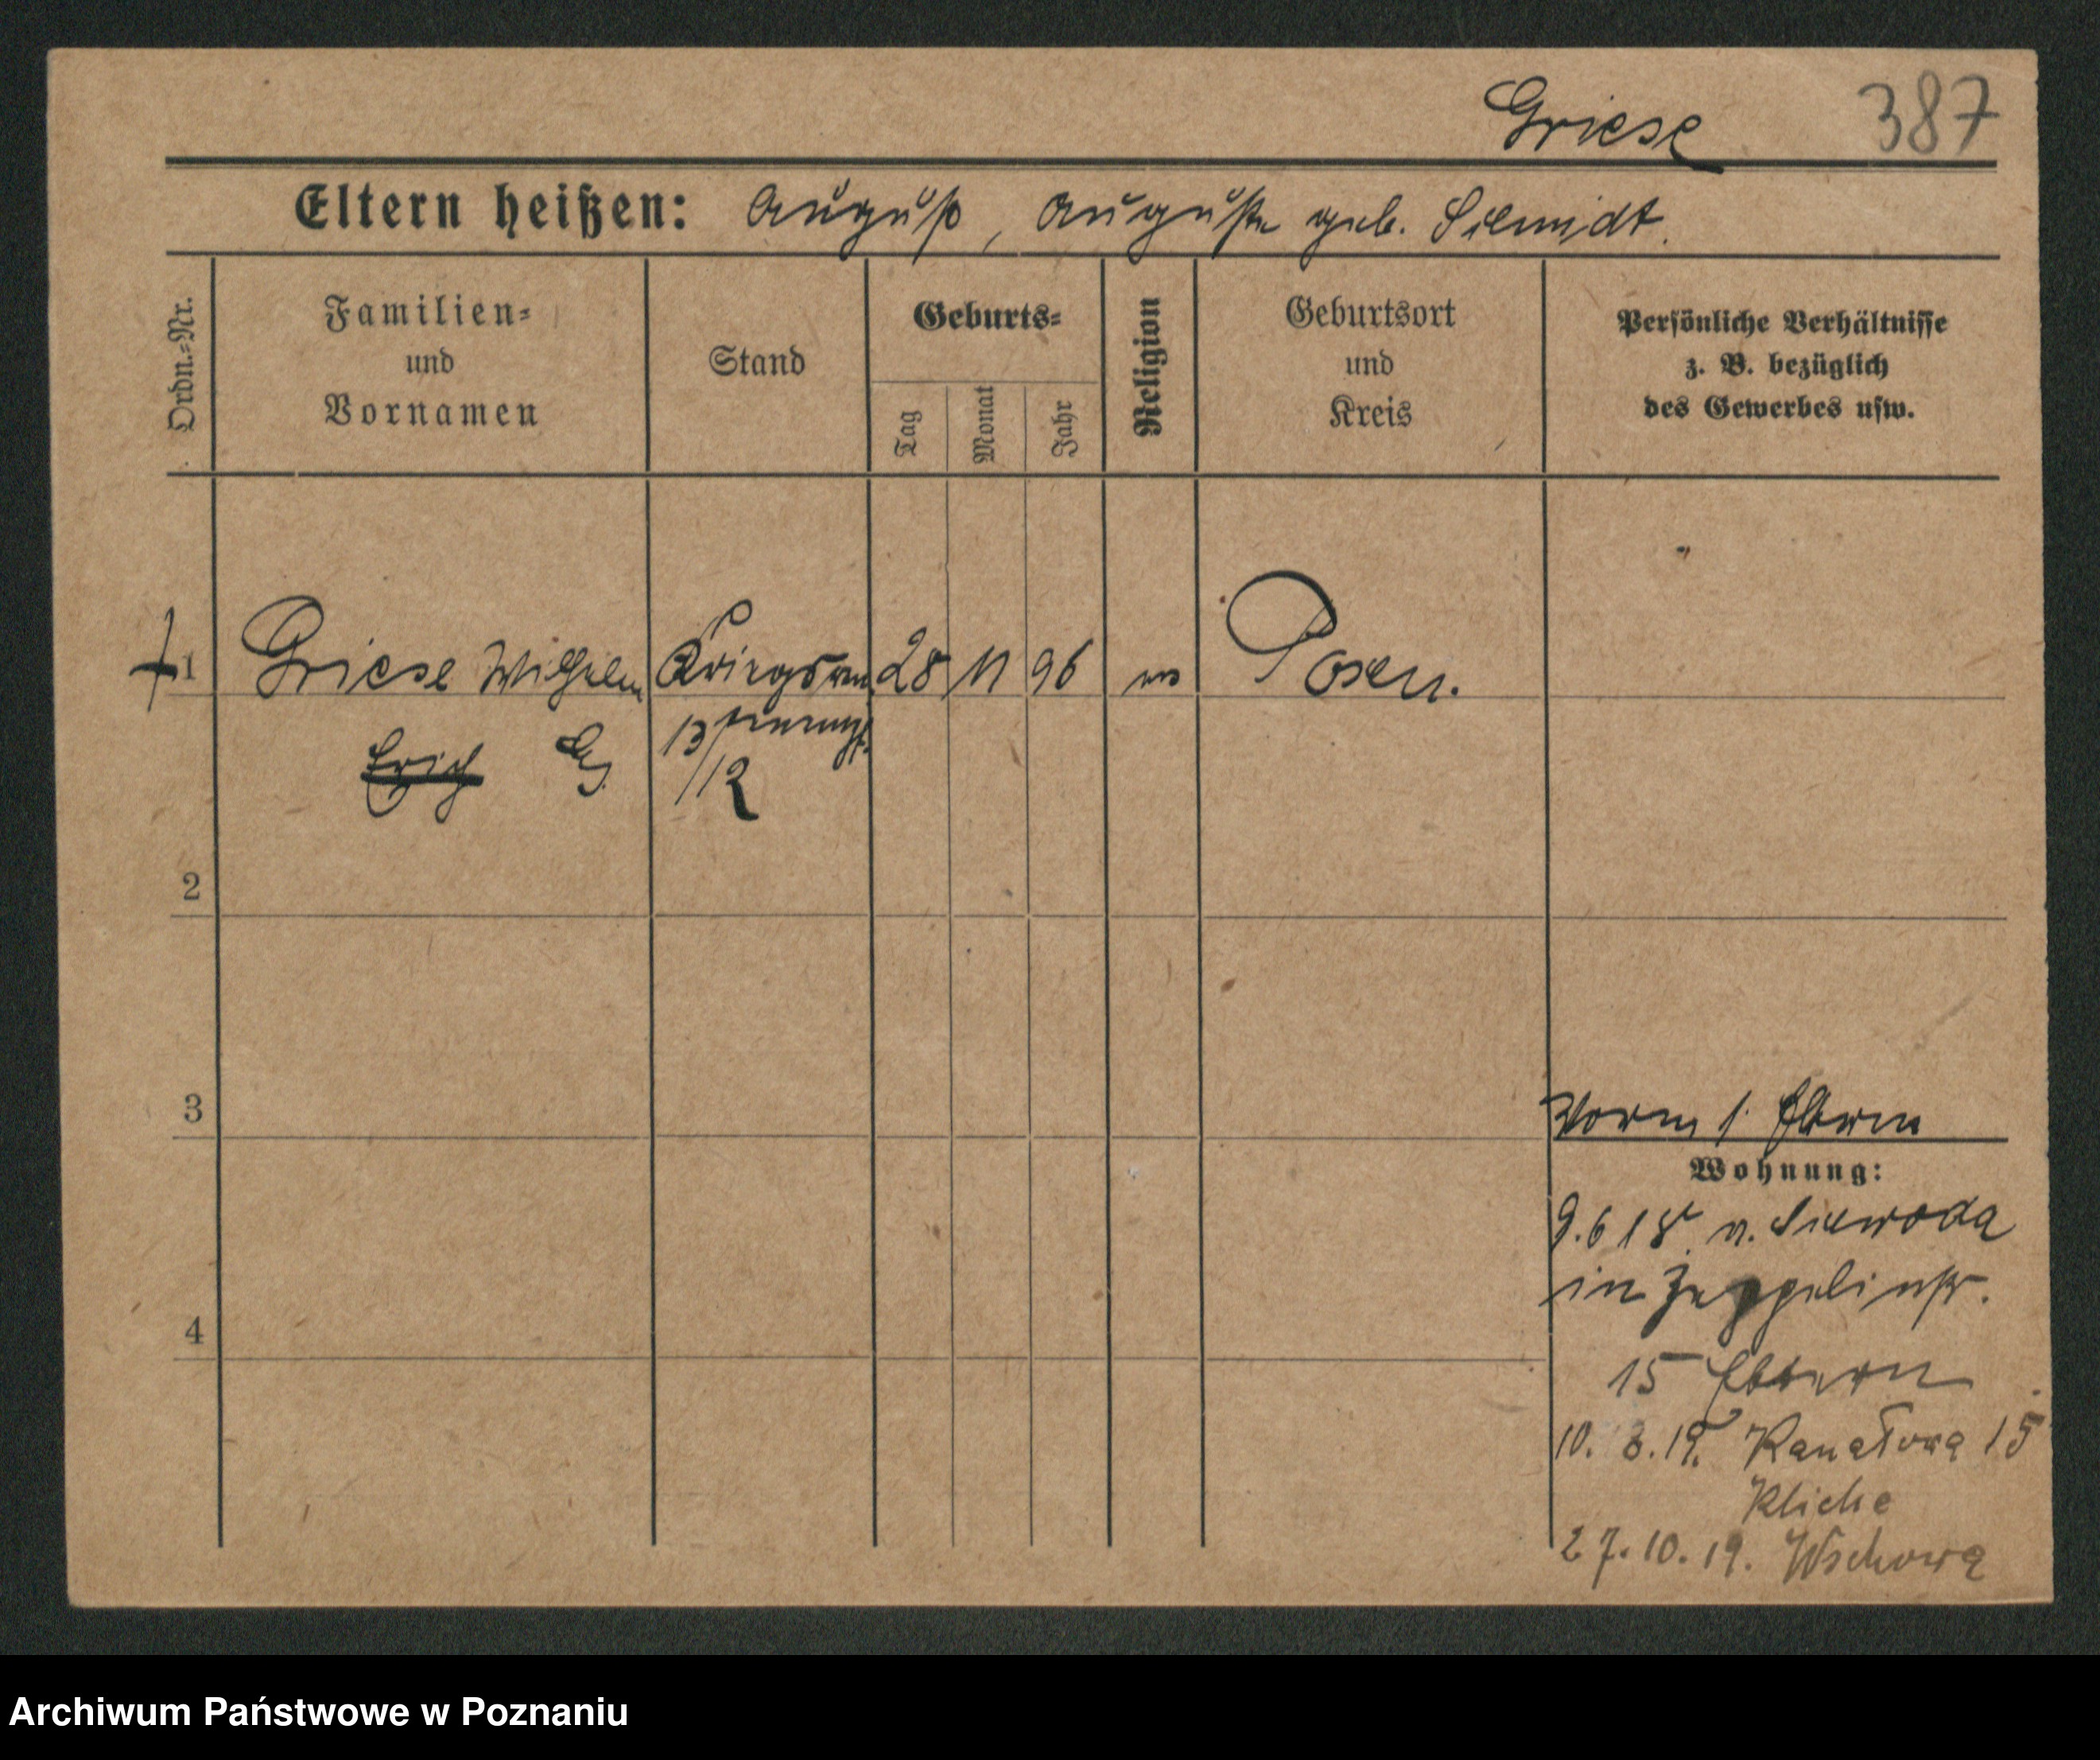 Griese 387
Eltern heißen: August, Auguste geb. Schmidt.
Ordn.-Nr.
Familien-
und
Vornamen
Stand
Geburts-
Tag
Monat
Jahr
Religion
Geburtsort
und
Kreis
Persönliche Verhältnisse
z. B. bezüglich
des Gewerbes usw.
1 Griese Wilhelm 28 11 96 Posen.
Erich
2
3
4
Vorm 1. Eltern
Wohnung:
9.6 18. n. Schwoda
in Zeppelinstr.
15 Eltern
10. 3. 19. Kanałowa 15
Kliche
27. 10. 19. Wschowa
Archiwum Państwowe w Poznaniu